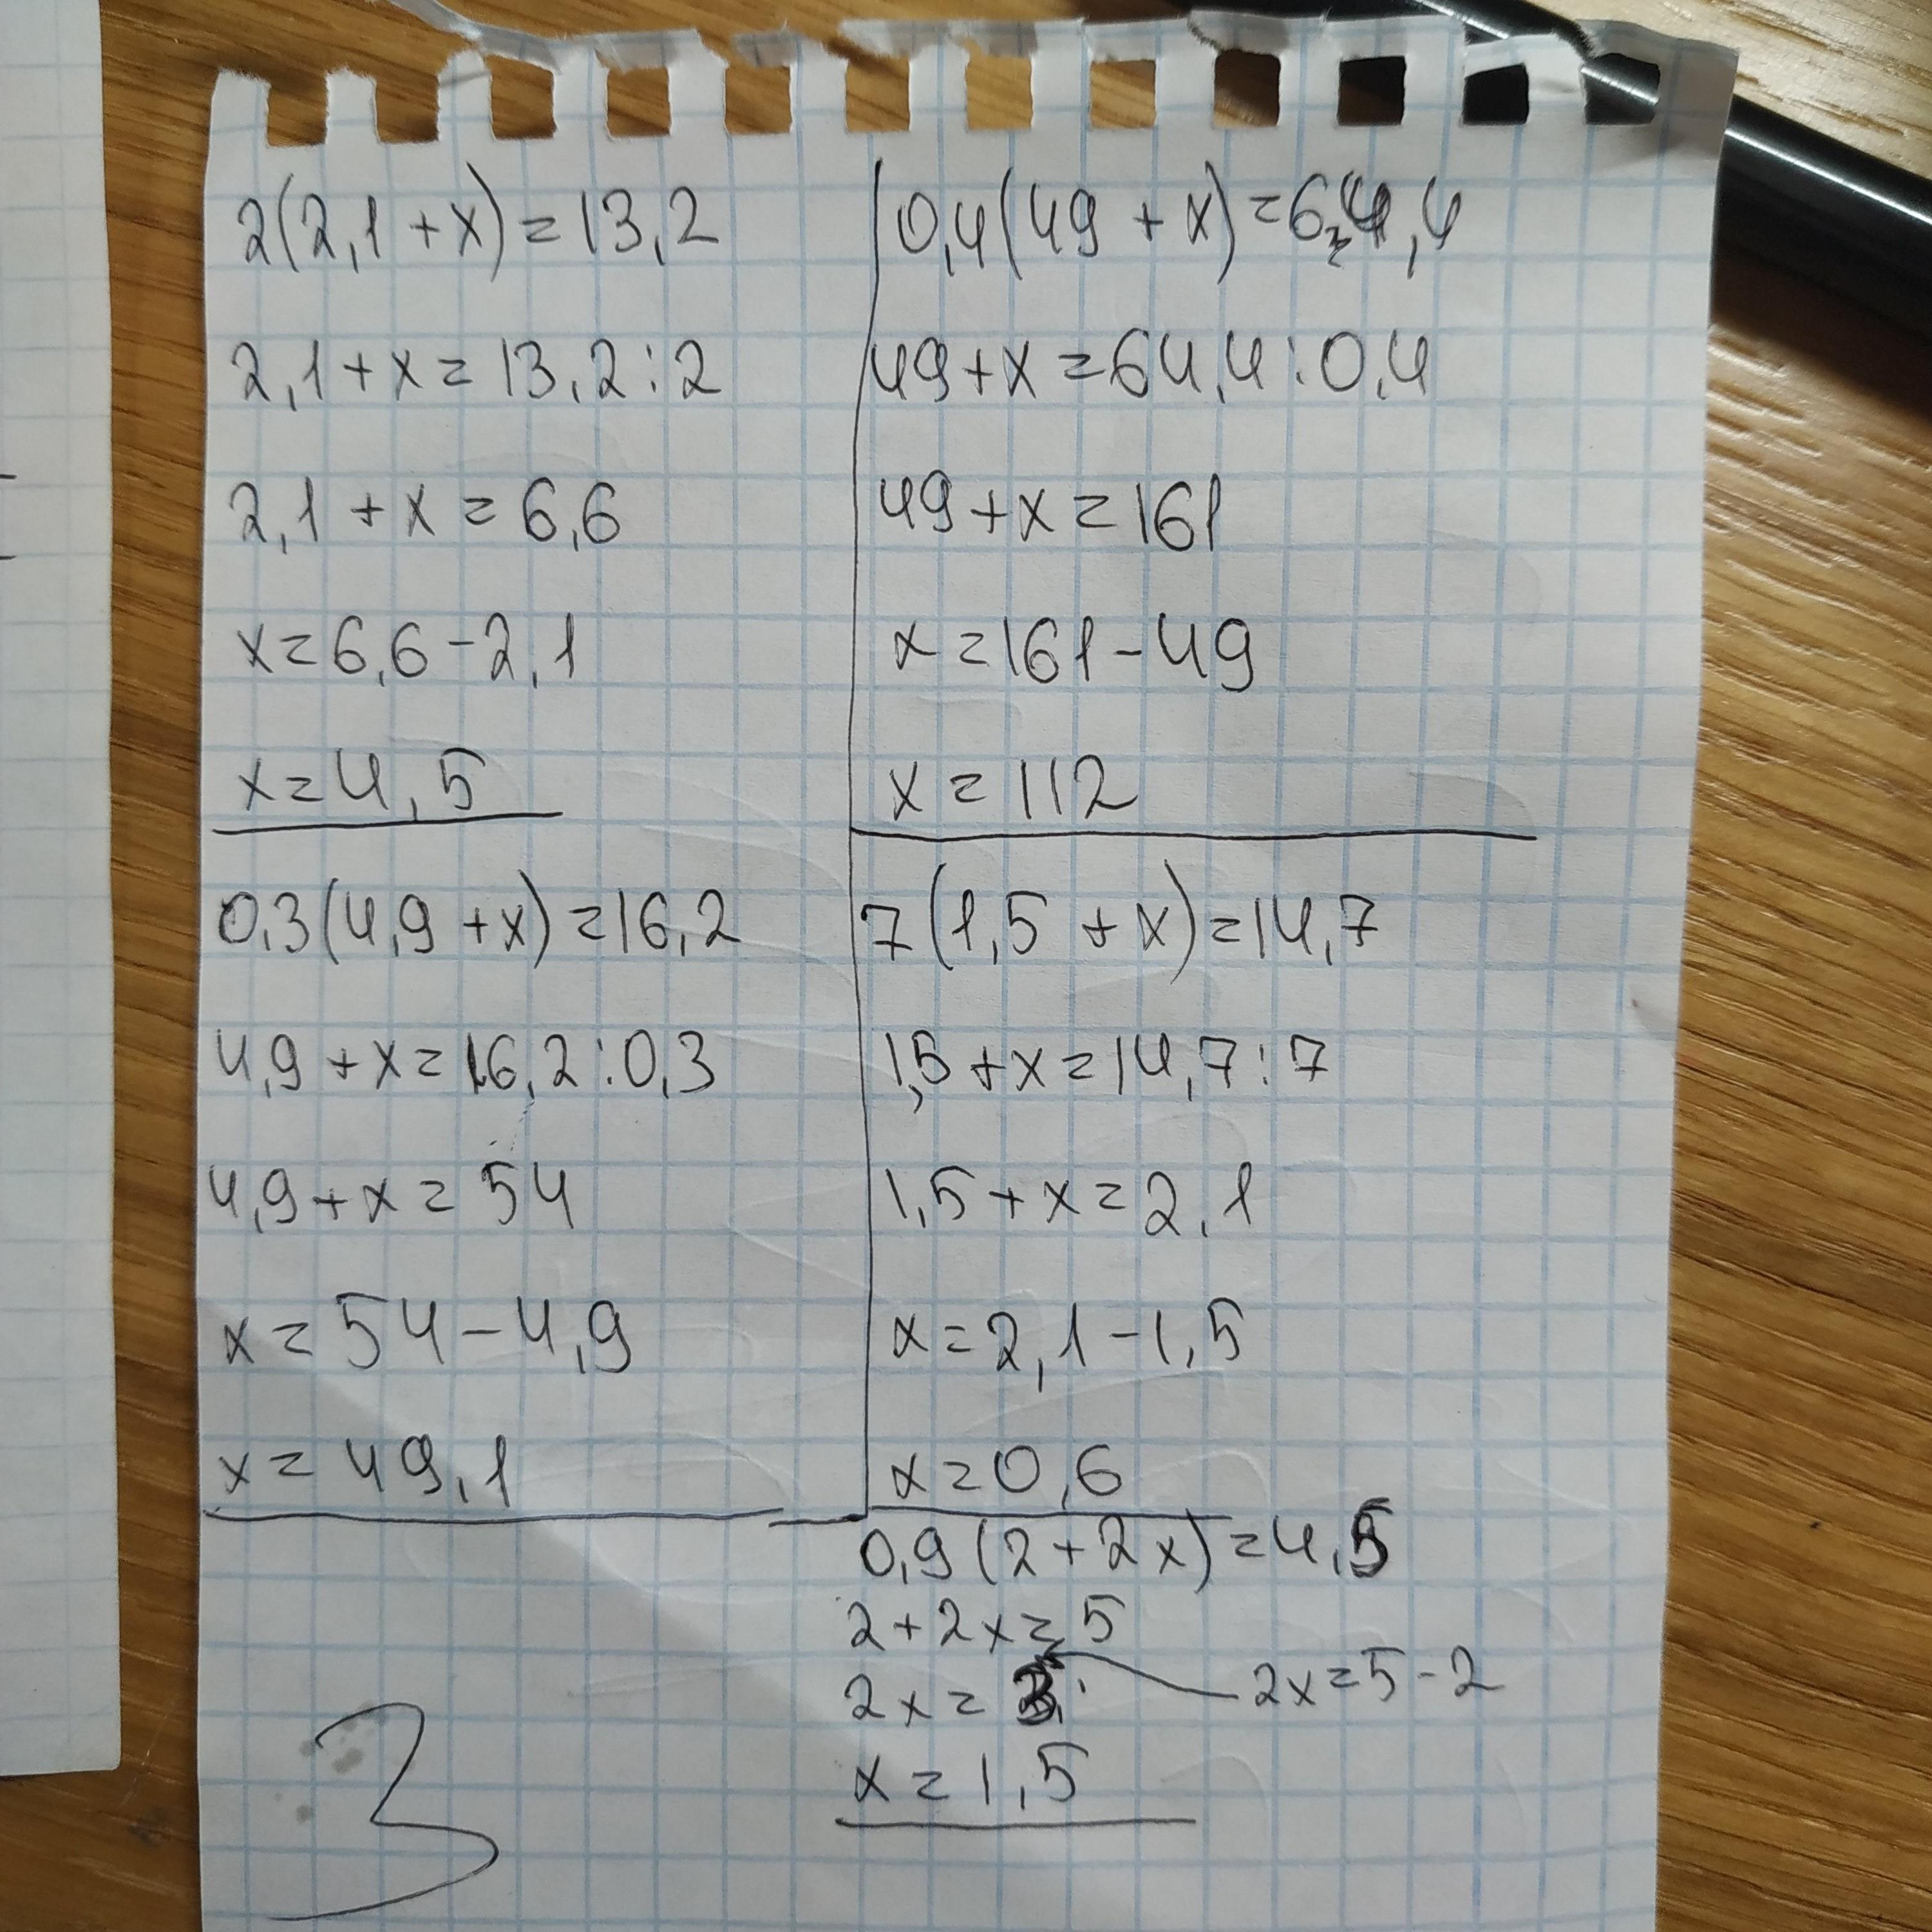 2(2,1+x)=13,2
2,1+x=13,2:2
2,1+x=6,6
x=6,6-2,1
x=4,5
0,3(4,9+x)=16,2
4,9+x=16,2:0,3
4,9+x=54
x=54-4,9
x=49,1
3
0,4(49+x)=64,4
49+x=64,4:0,4
49+x=161
x=161-49
x=112
7(1,5+x)=14,7
1,5+x=14,7:7
1,5+x=2,1
x=2,1-1,5
x=0,6
0,9(2+2x)=4,5
2+2x=5
2x=5-2
2x=3
x=1,5